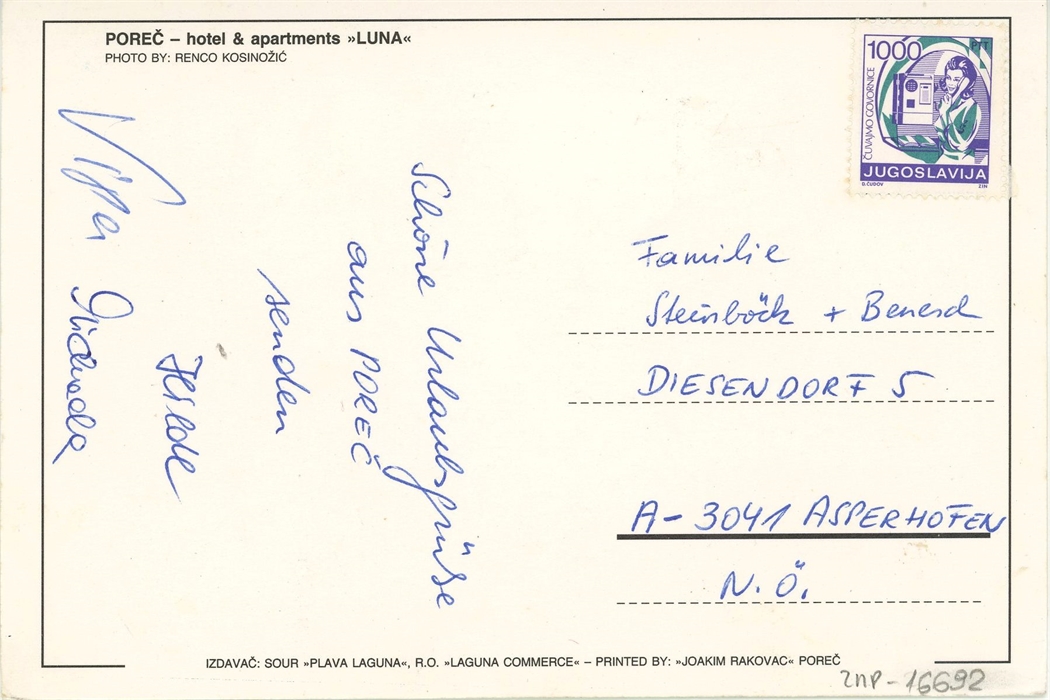 POREČ – hotel & apartments »LUNA«
PHOTO BY: RENCO KOSINOŽIĆ
1000
PTT
ČUVAJMO GOVORNICE
JUGOSLAVIJA
D.ČUDOV
ZIN
Schöne Urlaubsgrüße
aus POREČ
senden
Hilde
Familie
Steinböck + Benesch
DIESENDORF 5
A-3041 ASPERHOFEN
N.Ö.
IZDAVAČ: SOUR »PLAVA LAGUNA«, R.O. »LAGUNA COMMERCE« – PRINTED BY: »JOAKIM RAKOVAC« POREČ
ZNP-16692